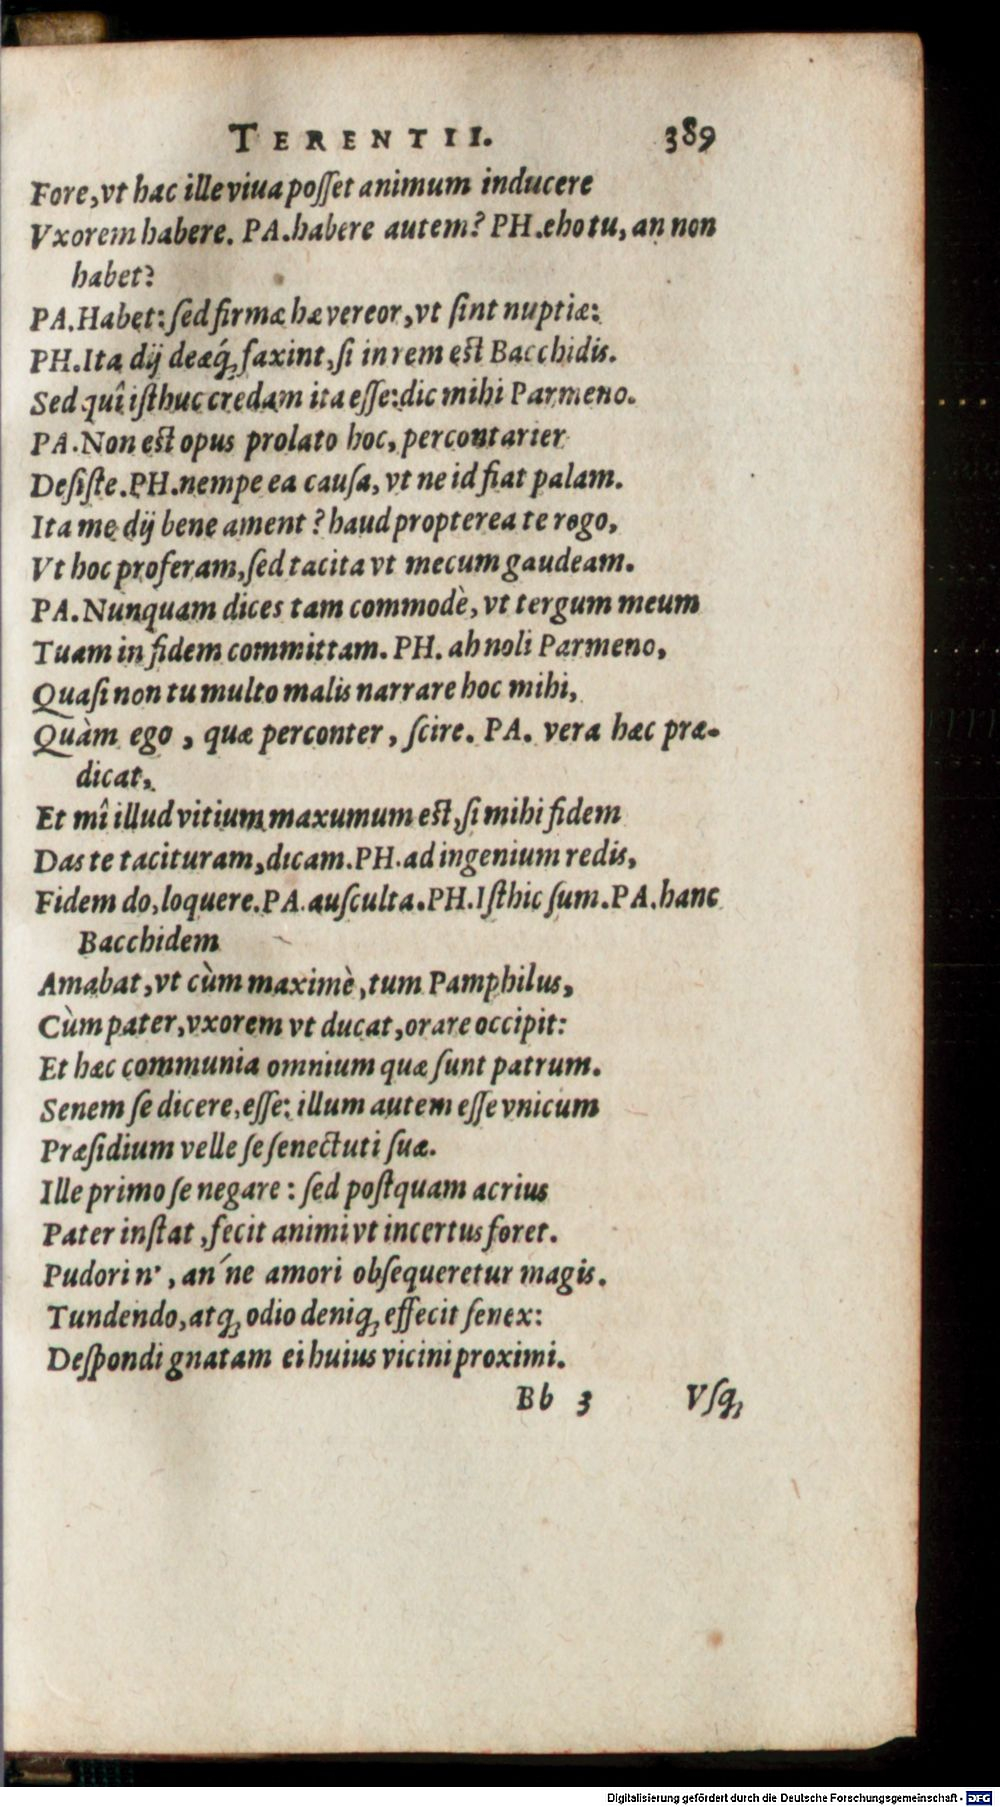 TERENTII. 389
Fore, vt hac ille viua posset animum inducere
Vxorem habere. PA. habere autem? PH. eho tu, an non
habet?
PA. Habet: sed firmæ hæ vereor, vt sint nuptiæ:
PH. Ita dij deæq́, faxint, si in rem est Bacchidis.
Sed quî isthuc credam ita esse: dic mihi Parmeno.
PA. Non est opus prolato hoc, percontarier
Desiste. PH. nempe ea causa, vt ne id fiat palam.
Ita me dij bene ament? haud propterea te rogo,
Vt hoc proferam, sed tacita vt mecum gaudeam.
PA. Nunquam dices tam commodè, vt tergum meum
Tuam in fidem committam. PH. ah noli Parmeno,
Quasi non tu multo malis narrare hoc mihi,
Quàm ego, quæ perconter, scire. PA. vera hæc præ-
dicat,
Et mî illud vitium maxumum est, si mihi fidem
Das te tacituram, dicam. PH. ad ingenium redis,
Fidem do, loquere. PA. ausculta. PH. Isthic sum. PA. hanc
Bacchidem
Amabat, vt cùm maximè, tum Pamphilus,
Cùm pater, vxorem vt ducat, orare occipit:
Et hæc communia omnium quæ sunt patrum.
Senem se dicere, esse: illum autem esse vnicum
Præsidium velle se senectuti suæ.
Ille primo se negare: sed postquam acrius
Pater instat, fecit animi vt incertus foret.
Pudori n', an´ne amori obsequeretur magis.
Tundendo, atq, odio deniq, effecit senex:
Despondi gnatam ei huius vicini proximi.
Bb 3 Vsq,
Digitalisierung gefördert durch die Deutsche Forschungsgemeinschaft - DFG